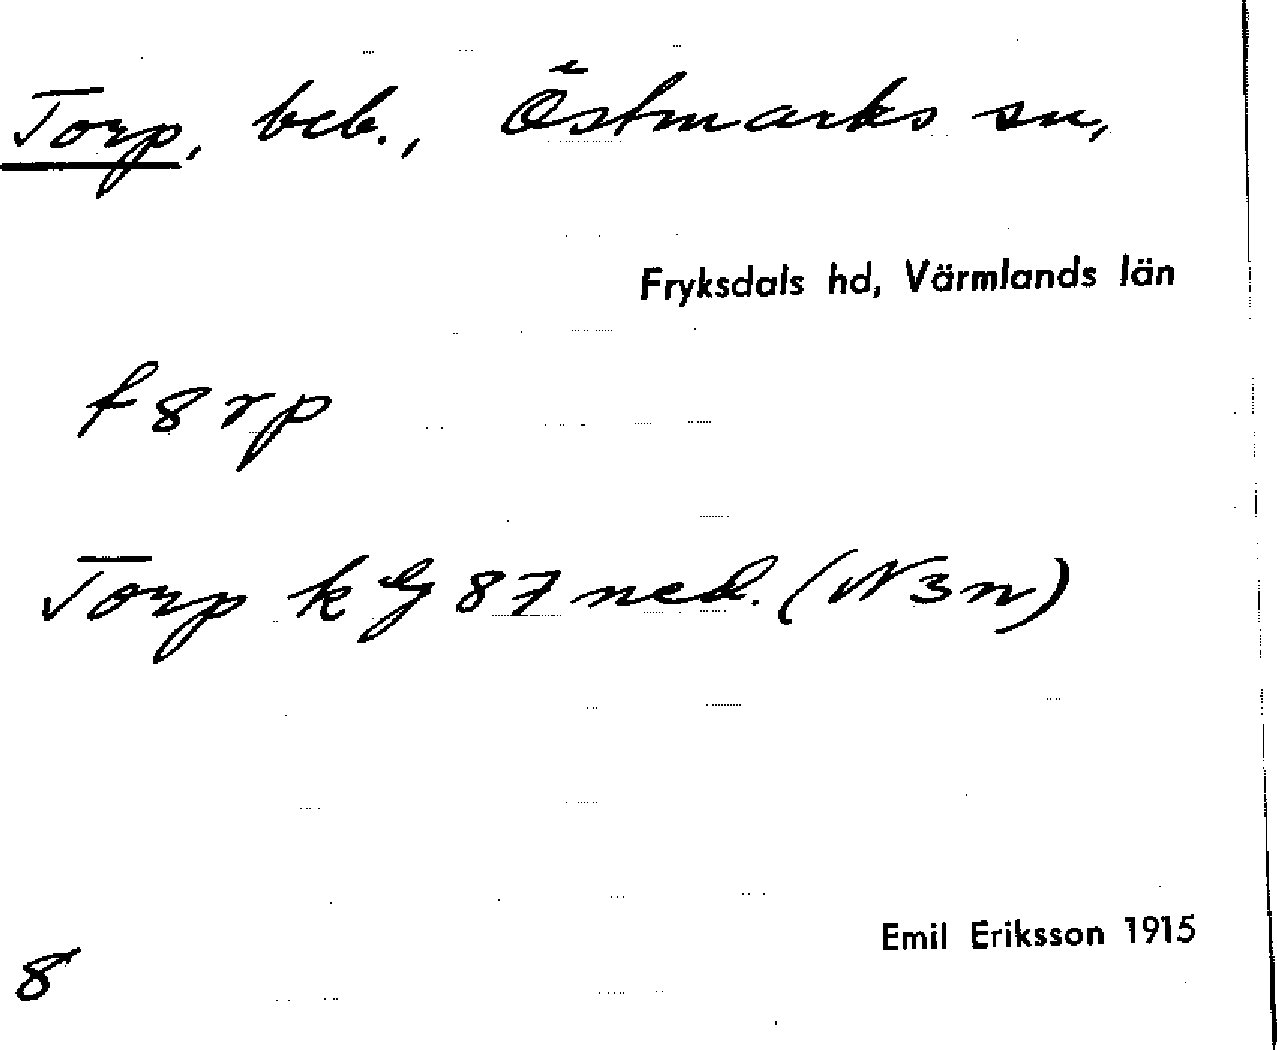 Torp, beb., Östmarks sn,
Fryksdals hd, Värmlands län
t8rp
Torp k G 87 ned. (N3n)
Emil Eriksson 1915
8